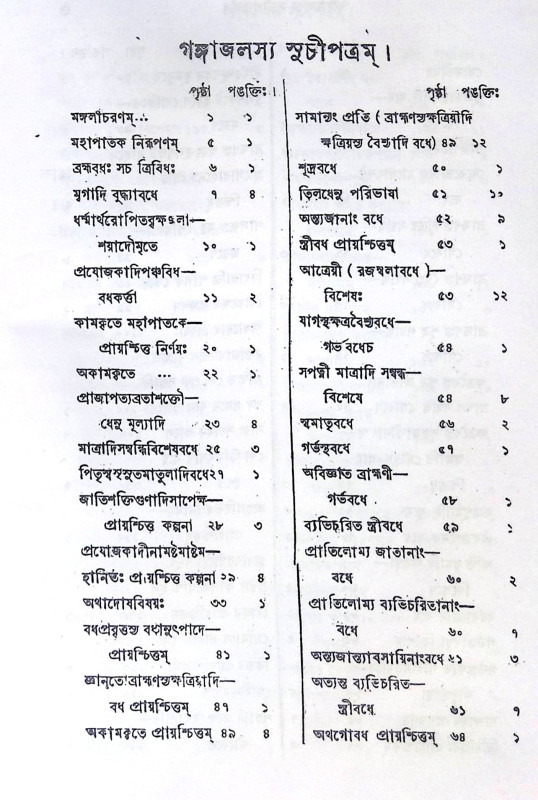 গঙ্গাজলস্য সূচীপত্রম্।
পৃষ্ঠা পঙক্তিঃ।
মঙ্গলাচরণম্... ১ ১
মহাপাতক নিরূপণম্ ৫ ১
ব্রহ্মবধঃ সচ ত্রিবিধঃ
মৃগাদি বুদ্ধ্যাবধে ৭ ৪
ধর্ম্মার্থরোপিতবৃক্ষ
শয়াদৌমৃতে ১০ ১
প্রযোজকাদিপঞ্চবিধ—
বধকর্ত্তা ১১ ১
কামকৃতে মহাপাতকে
প্রায়শ্চিত্ত নির্ণয়ঃ ২০ ১
অকামকৃতে ... ২২ ১
প্রাজাপত্যব্রতাশক্তৌ—
ধেনু মূল্যাদি ২৩ ১
মাত্রাদিসম্বন্ধিবিশেষবধে ২৫ ১
পিতৃস্বসৃসুতমাতুলাদিবধে ২৭ ১
জাতিশক্তিগুণাদিসাপেক্ষ—
প্রায়শ্চিত্ত কল্পনা ২৮ ৩
প্রযোজকাদীনামষ্টমাষ্টম—
হানিতঃ প্রায়শ্চিত্ত কল্পনা ২৯ ৪
অথাদোষবিষয়ঃ ৩৩ ১
বধপ্রবৃত্তস্য বধানুৎপাদে—
প্রায়শ্চিত্তম্ ৪১ ১
জ্ঞানতোব্রাহ্মণস্যক্ষত্রিয়াদি—
বধ প্রায়শ্চিত্তম্ ৪৭ ১
অকামকৃতে প্রায়শ্চিত্তম্ ৪৯ ৪
পৃষ্ঠা পঙক্তিঃ
সামান্যং প্রতি ( ব্রাহ্মণস্যক্ষত্রিয়াদি
ক্ষত্রিয়স্য বৈশ্যাদি বধে) ৪৯ ১২
শূদ্রবধে ৫০ ১
তিলধেনু পরিভাষা ৫১ ১০
অন্ত্যজানাং বধে ৫২ ৯
স্ত্রীবধ প্রায়শ্চিত্তম্ ৫৩ ১
আত্রেয়ী ( রজস্বলাবধে )—
বিশেষঃ ৫৩ ১২
যাগস্থক্ষত্রবৈশ্যবধে—
গর্ভবধেচ ৫৪ ১
সপত্নী মাত্রাদি সম্বন্ধ—
বিশেষে ৫৪ ৮
স্বমাতৃবধে ৫৬ ২
গর্ভস্থবধে ৫৭ ১
অবিজ্ঞাত ব্রাহ্মণী—
গর্ভবধে ৫৮ ১
ব্যভিচরিত স্ত্রীবধে ৫৯ ১
প্রাতিলোম্য জাতানাং—
বধে ৬০ ২
প্রাতিলোম্য ব্যভিচরিতানাং—
বধে ৬০ ৭
অন্ত্যজান্ত্যাবসায়িনাংবধে ৬১ ৩
অত্যন্ত ব্যভিচরিত—
স্ত্রীবধে ৬১ ৭
অথগোবধ প্রায়শ্চিত্তম্ ৬৪ ১